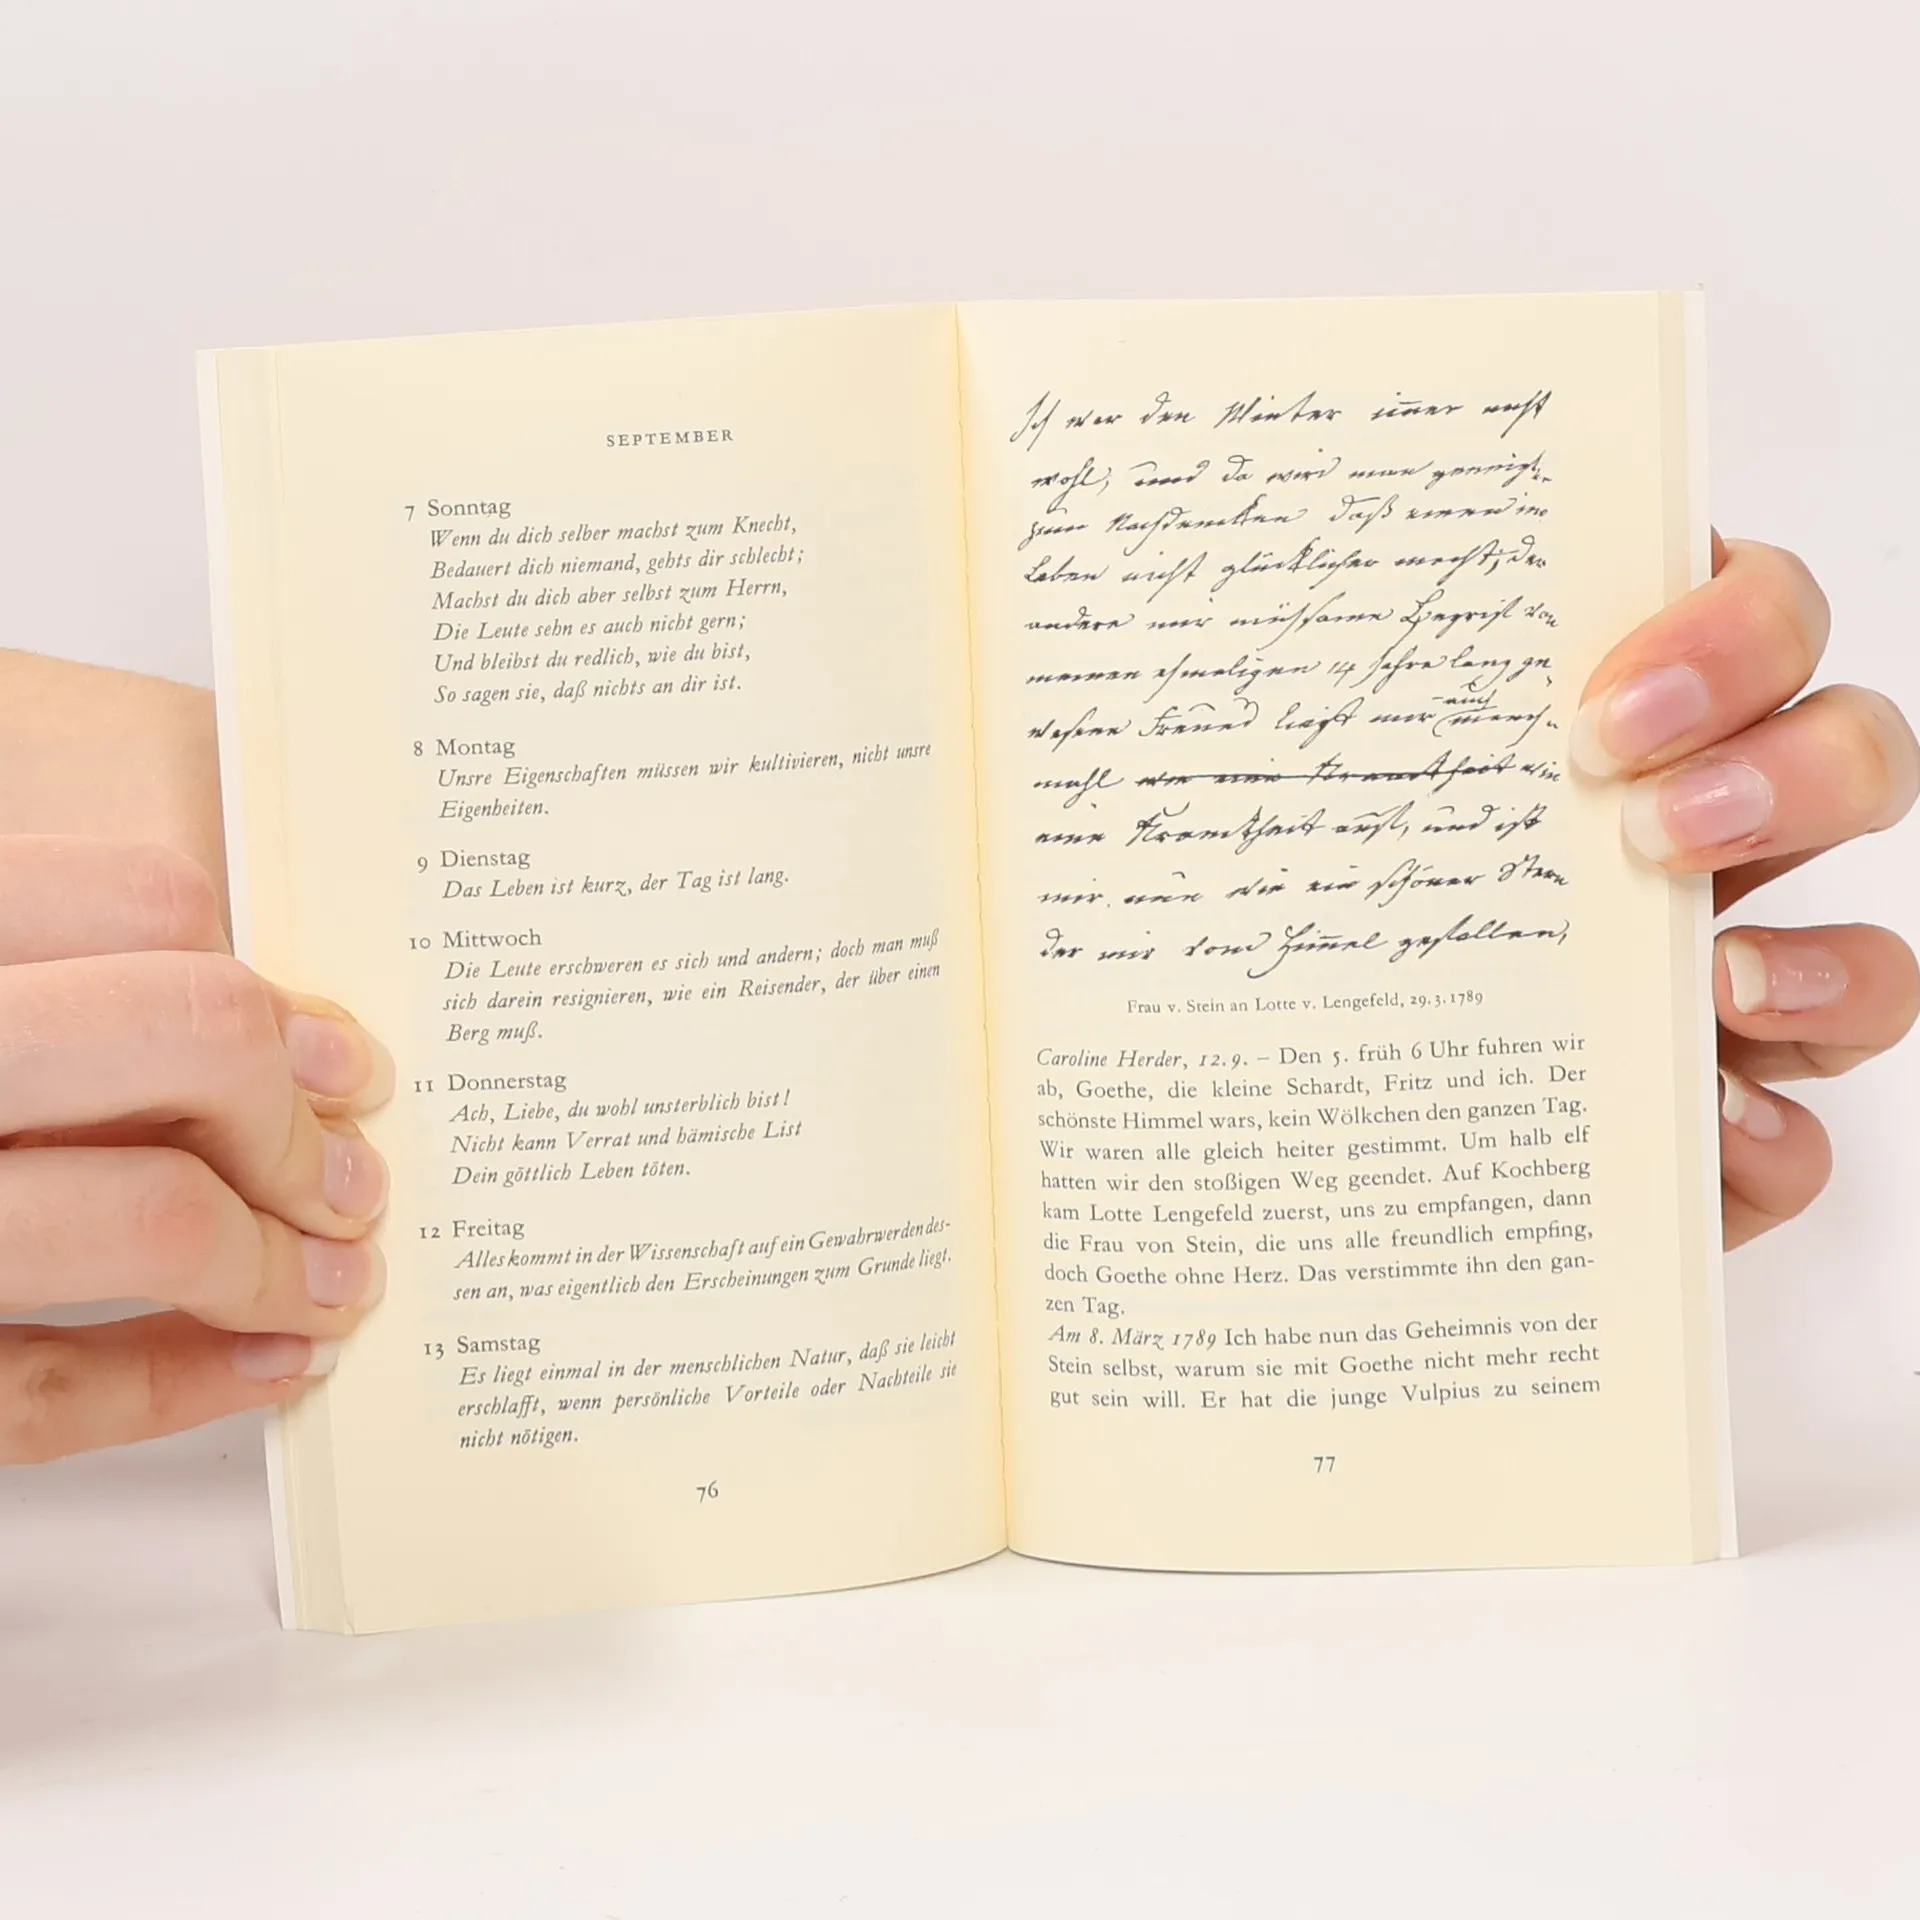 SEPTEMBER
7 Sonntag
Wenn du dich selber machst zum Knecht,
Bedauert dich niemand, gehts dir schlecht;
Machst du dich aber selbst zum Herrn,
Die Leute sehn es auch nicht gern;
Und bleibst du redlich, wie du bist,
So sagen sie, daß nichts an dir ist.
8 Montag
Unsre Eigenschaften müssen wir kultivieren, nicht unsre
Eigenheiten.
9 Dienstag
Das Leben ist kurz, der Tag ist lang.
10 Mittwoch
Die Leute erschweren es sich und andern; doch man muß
sich darein resignieren, wie ein Reisender, der über einen
Berg muß.
11 Donnerstag
Ach, Liebe, du wohl unsterblich bist!
Nicht kann Verrat und hämische List
Dein göttlich Leben töten.
12 Freitag
Alles kommt in der Wissenschaft auf ein Gewahrwerden des-
sen an, was eigentlich den Erscheinungen zum Grunde liegt.
13 Samstag
Es liegt einmal in der menschlichen Natur, daß sie leicht
erschlafft, wenn persönliche Vorteile oder Nachteile sie
nicht nötigen.
76
Ich war den Winter immer nicht
wohl, und da wird man geneigt
zum Nachdencken daß einen im
Leben nicht glücklicher macht, der
andere mir mühsame Begrif von
meinen ehmaligen 14 Jahre lang ge
wesene Freund liegt mir auch manch
mahl wie eine Kranckheit wie
eine Kranckheit auf, und ist
mir nun wie ein schöner Stern
der mir vom Himmel gefallen,
Frau v. Stein an Lotte v. Lengefeld, 29.3.1789
Caroline Herder, 12.9. – Den 5. früh 6 Uhr fuhren wir
ab, Goethe, die kleine Schardt, Fritz und ich. Der
schönste Himmel wars, kein Wölkchen den ganzen Tag.
Wir waren alle gleich heiter gestimmt. Um halb elf
hatten wir den stoßigen Weg geendet. Auf Kochberg
kam Lotte Lengefeld zuerst, uns zu empfangen, dann
die Frau von Stein, die uns alle freundlich empfing,
doch Goethe ohne Herz. Das verstimmte ihn den gan-
zen Tag.
Am 8. März 1789 Ich habe nun das Geheimnis von der
Stein selbst, warum sie mit Goethe nicht mehr recht
gut sein will. Er hat die junge Vulpius zu seinem
77